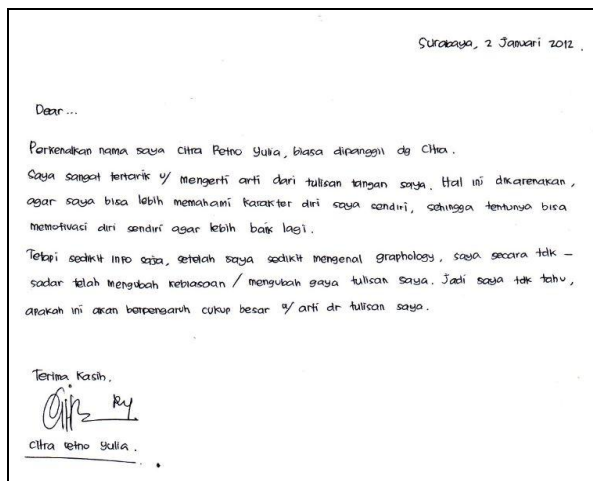 Surabaya, 2 Januari 2012.
Dear...
Perkenalkan nama saya Citra Retno Yulia, biasa dipanggil dg Citra.
Saya sangat tertarik u/ mengerti arti dari tulisan tangan saya. Hal ini dikarenakan,
agar saya bisa lebih memahami karakter diri saya sendiri, sehingga tentunya bisa
memotivasi diri sendiri agar lebih baik lagi.
Tetapi sedikit info saja, setelah saya sedikit mengenal graphology, saya secara tdk –
sadar telah mengubah kebiasaan / mengubah gaya tulisan saya. Jadi saya tdk tahu,
apakah ini akan berpengaruh cukup besar u/ arti dr tulisan saya.
Terima Kasih.
Citra Retno Yulia.